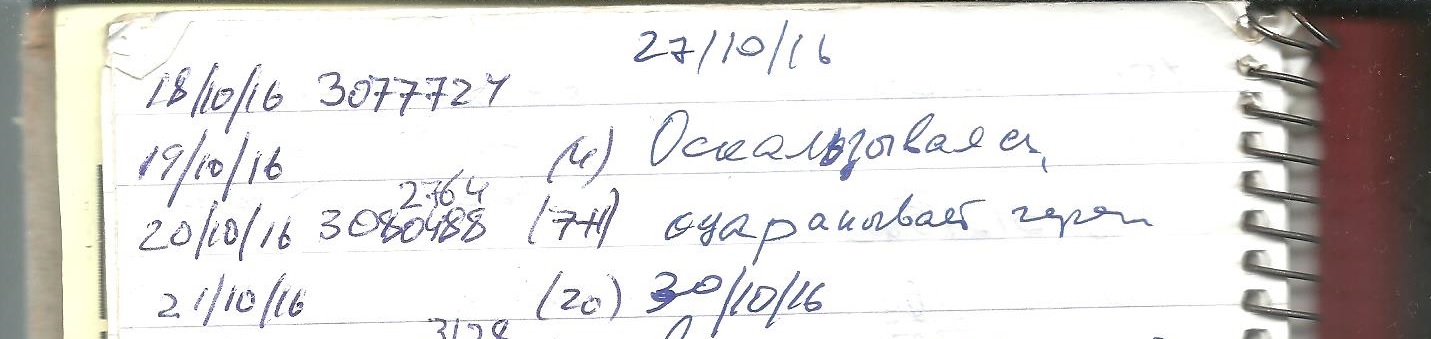 27/10/16
18/10/16 3077724
19/10/16 (4) Оскальзываясь,
2764
20/10/16 3080488 (74) оцарапывает череп
21/10/16 (20) 30/10/16
3128